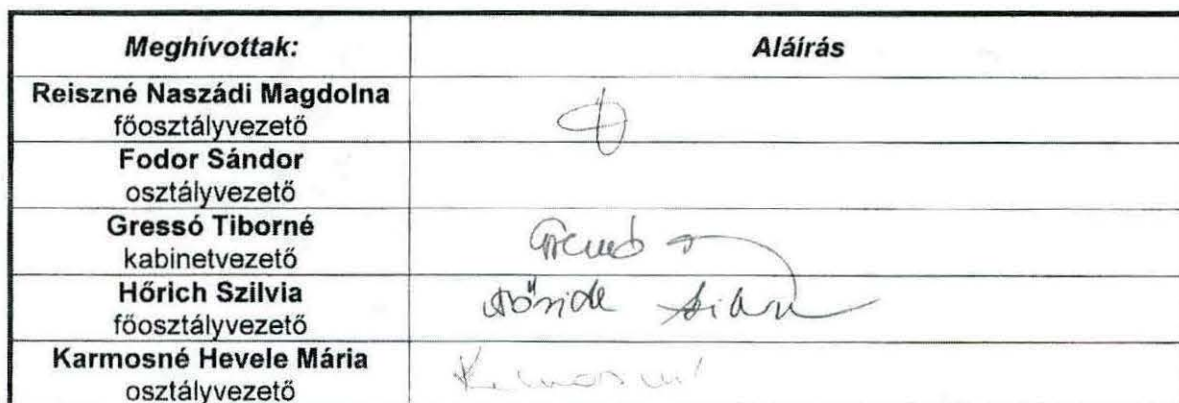 Meghívottak: Aláírás
Reiszné Naszádi Magdolna
főosztályvezető
Fodor Sándor
osztályvezető
Gressó Tiborné
kabinetvezető
Hőrich Szilvia
főosztályvezető
Karmosné Hevele Mária
osztályvezető